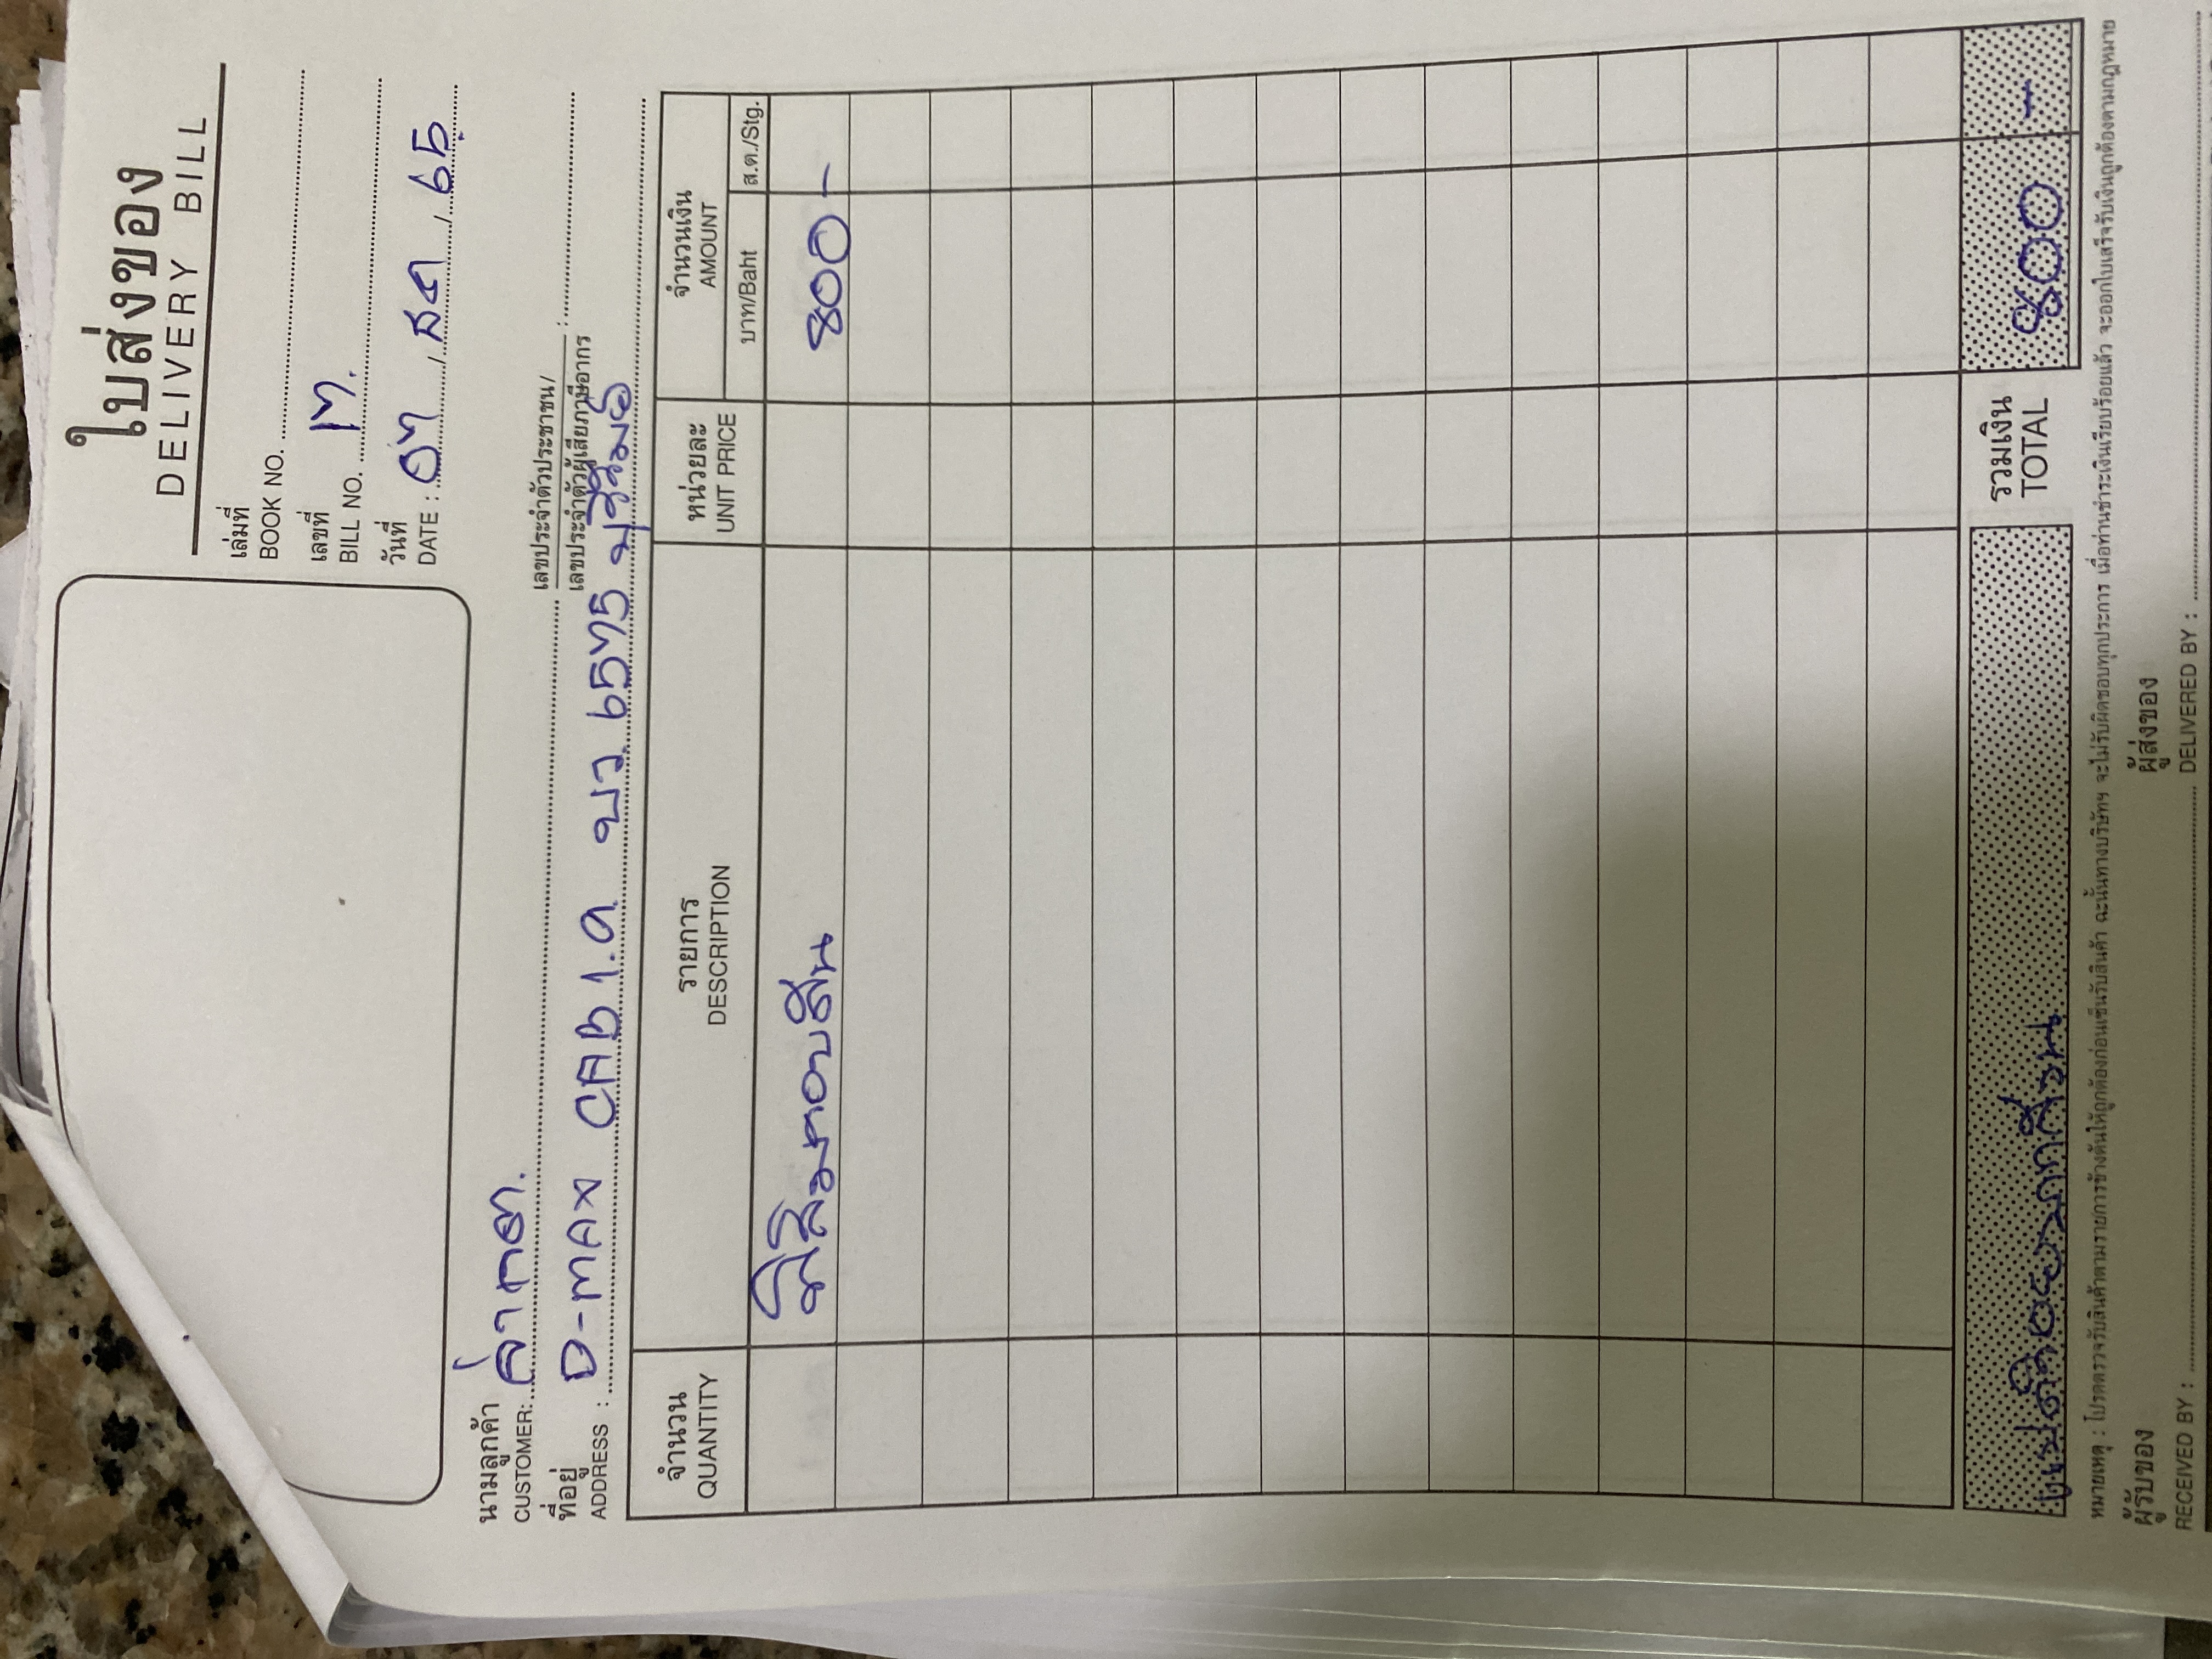 ใบส่งของ
DELIVERY BILL
เล่มที่
BOOK NO.
เลขที่
BILL NO.
วันที่
DATE : 07 / สค / 65
นามลูกค้า
CUSTOMER:
เลขประจำตัวประชาชน/
เลขประจำตัวผู้เสียภาษีอากร
ที่อยู่
ADDRESS : D-MAX CAB 1.9 บว 6575 บุรีรัมย์
จำนวน รายการ หน่วยละ จำนวนเงิน
QUANTITY DESCRIPTION UNIT PRICE AMOUNT
บาท/Baht ส.ต./Stg.
800 -
รวมเงิน
TOTAL 800 -
หมายเหตุ : โปรดตรวจรับสินค้าตามรายการข้างต้นให้ถูกต้องก่อนเซ็นรับสินค้า ฉะนั้นทางบริษัทฯ จะไม่รับผิดชอบทุกประการ เมื่อท่านชำระเงินเรียบร้อยแล้ว จะออกใบเสร็จรับเงินถูกต้องตามกฎหมาย
ผู้รับของ ผู้ส่งของ
RECEIVED BY : DELIVERED BY :